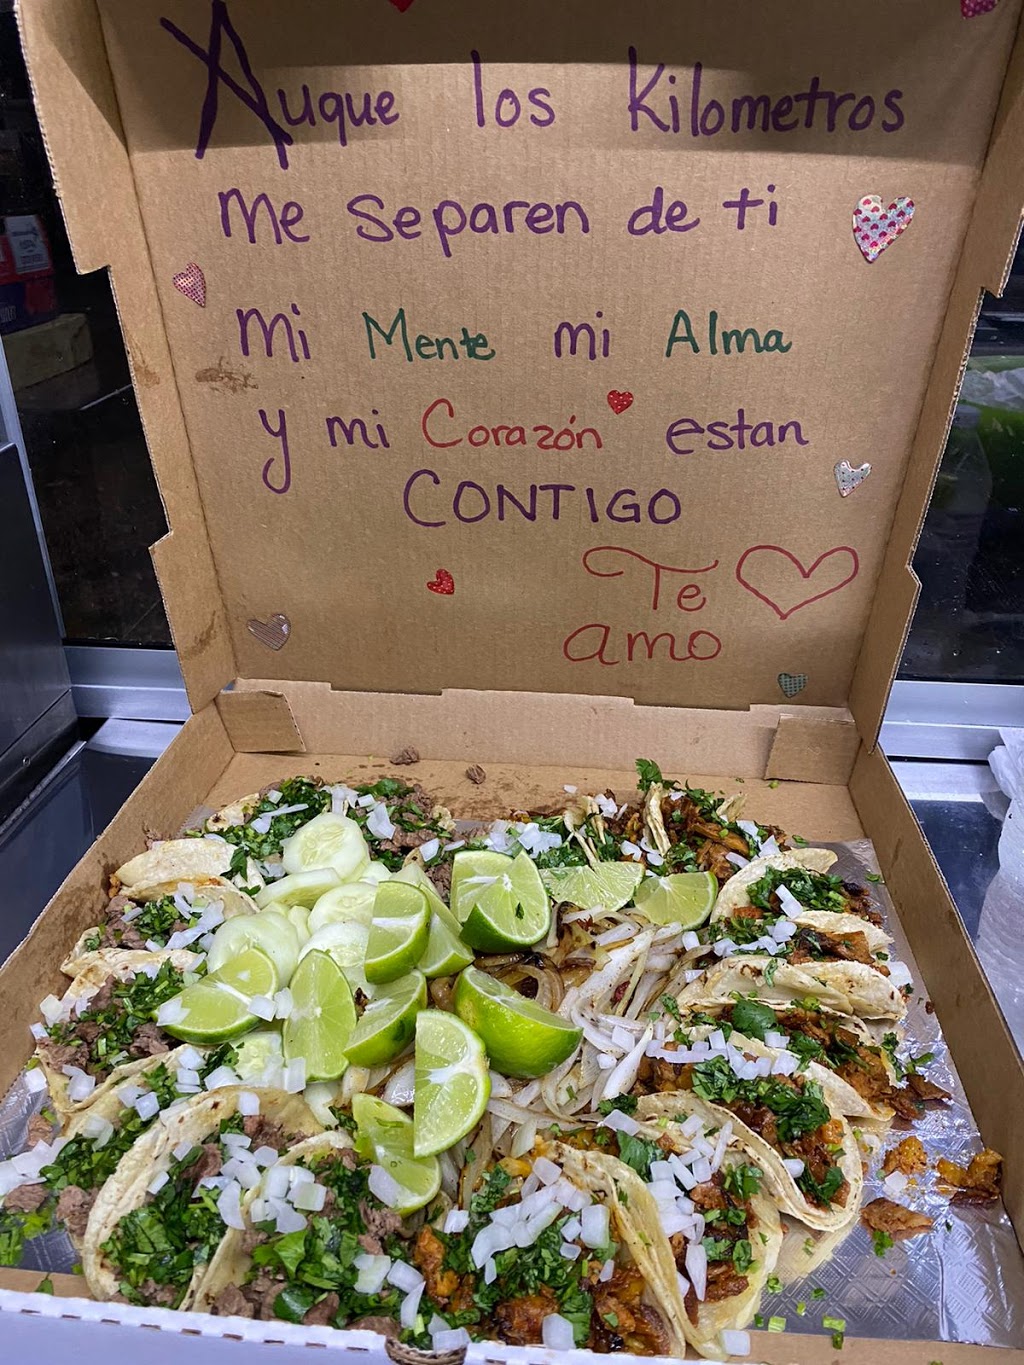 Auque los Kilometros
me separen de ti
mi Mente mi Alma
y mi Corazón estan
CONTIGO
Te
amo